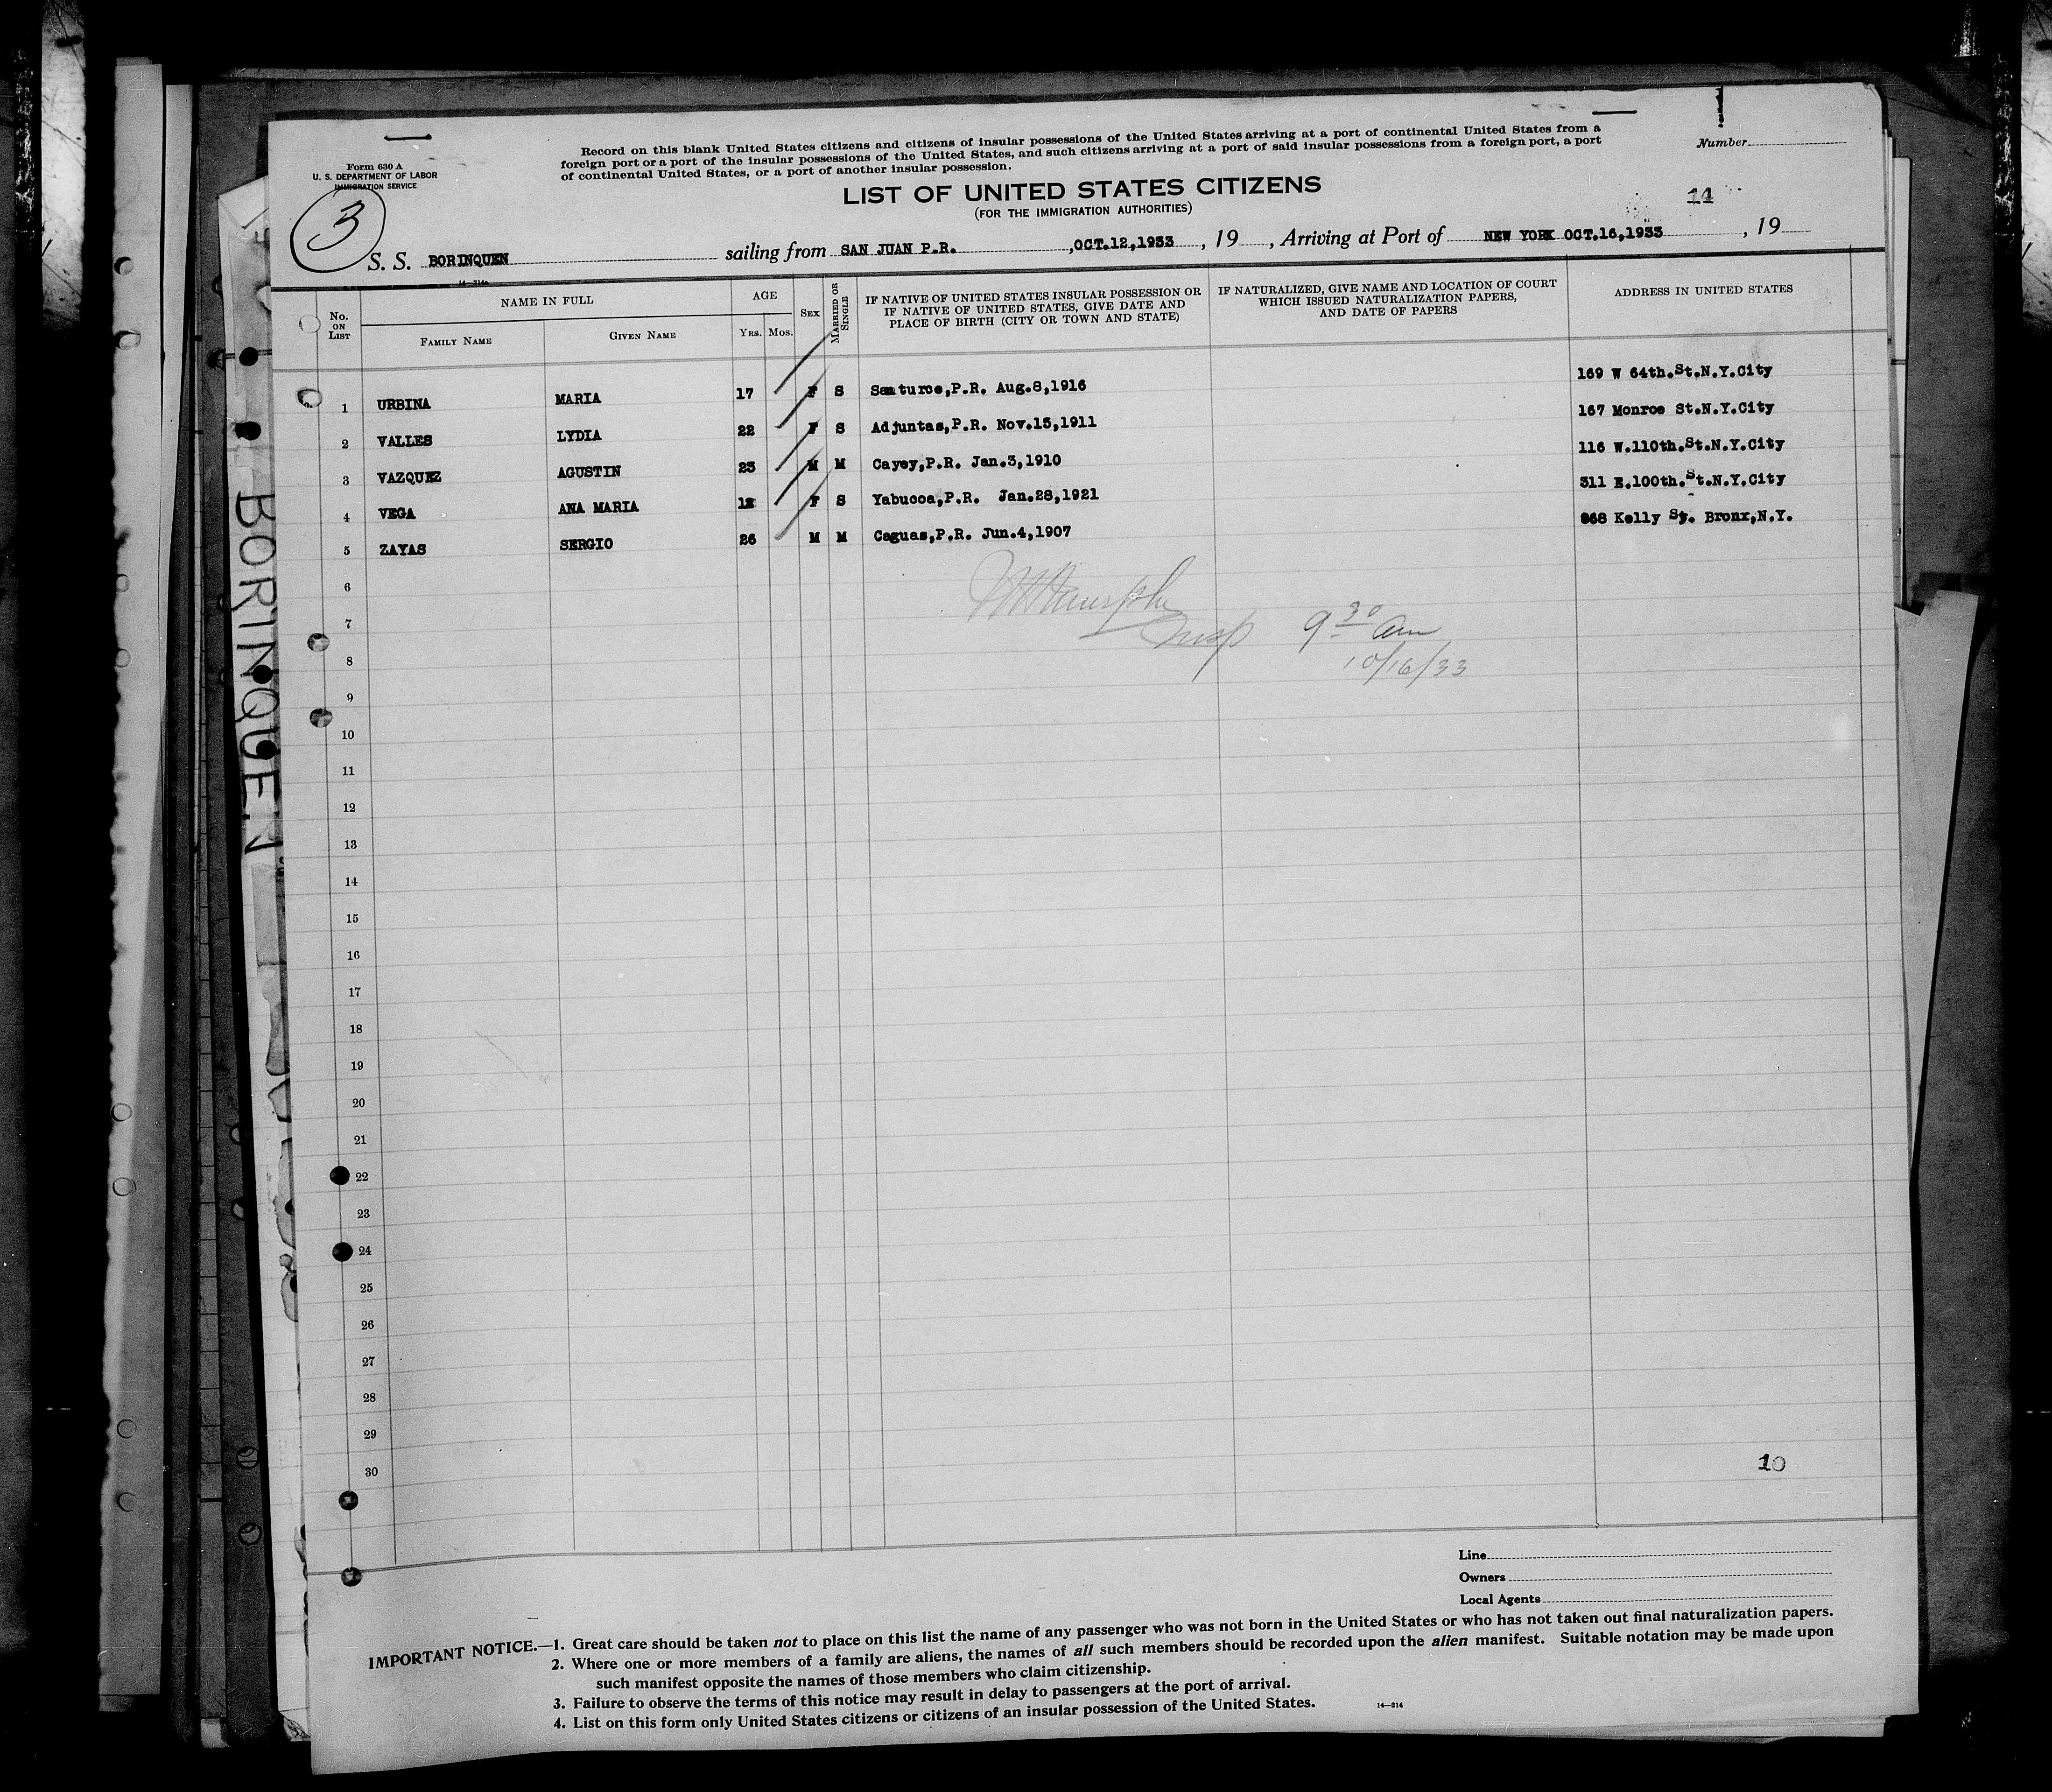 Form 630 A
U. S. DEPARTMENT OF LABOR
IMMIGRATION SERVICE
Record on this blank United States citizens and citizens of insular possessions of the United States arriving at a port of continental United States from a
foreign port or a port of the insular possessions of the United States, and such citizens arriving at a port of said insular possessions from a foreign port, a port
of continental United States, or a port of another insular possession.
Number
LIST OF UNITED STATES CITIZENS
(FOR THE IMMIGRATION AUTHORITIES)
14
3
S. S. BORINQUEN sailing from SAN JUAN P.R. ,OCT.12,1933 , 19 , Arriving at Port of NEW YORK OCT.16,1933 , 19
No. ON LIST
NAME IN FULL
FAMILY NAME
GIVEN NAME
AGE
YRS. MOS.
SEX
MARRIED OR SINGLE
IF NATIVE OF UNITED STATES INSULAR POSSESSION OR
IF NATIVE OF UNITED STATES, GIVE DATE AND
PLACE OF BIRTH (CITY OR TOWN AND STATE)
IF NATURALIZED, GIVE NAME AND LOCATION OF COURT
WHICH ISSUED NATURALIZATION PAPERS,
AND DATE OF PAPERS
ADDRESS IN UNITED STATES
1 URBINA MARIA 17 F S Santurce,P.R. Aug.8,1916 169 W 64th.St.N.Y.City
2 VALLES LYDIA 22 F S Adjuntas,P.R. Nov.15,1911 167 Monroe St.N.Y.City
3 VAZQUEZ AGUSTIN 23 M M Cayey,P.R. Jan.3,1910 116 W.110th.St.N.Y.City
4 VEGA ANA MARIA 12 F S Yabucoa,P.R. Jan.28,1921 311 E.100th.St.N.Y.City
5 ZAYAS SERGIO 26 M M Caguas,P.R. Jun.4,1907 868 Kelly St. Bronx,N.Y.
6
7
Insp 9 30 am
8
10/16/33
9
10
11
12
13
14
15
16
17
18
19
20
21
22
23
24
25
26
27
28
29
30
10
BORINQUEN
Line
Owners
Local Agents
IMPORTANT NOTICE.—1. Great care should be taken not to place on this list the name of any passenger who was not born in the United States or who has not taken out final naturalization papers.
2. Where one or more members of a family are aliens, the names of all such members should be recorded upon the alien manifest. Suitable notation may be made upon
such manifest opposite the names of those members who claim citizenship.
3. Failure to observe the terms of this notice may result in delay to passengers at the port of arrival.
4. List on this form only United States citizens or citizens of an insular possession of the United States.
14—214